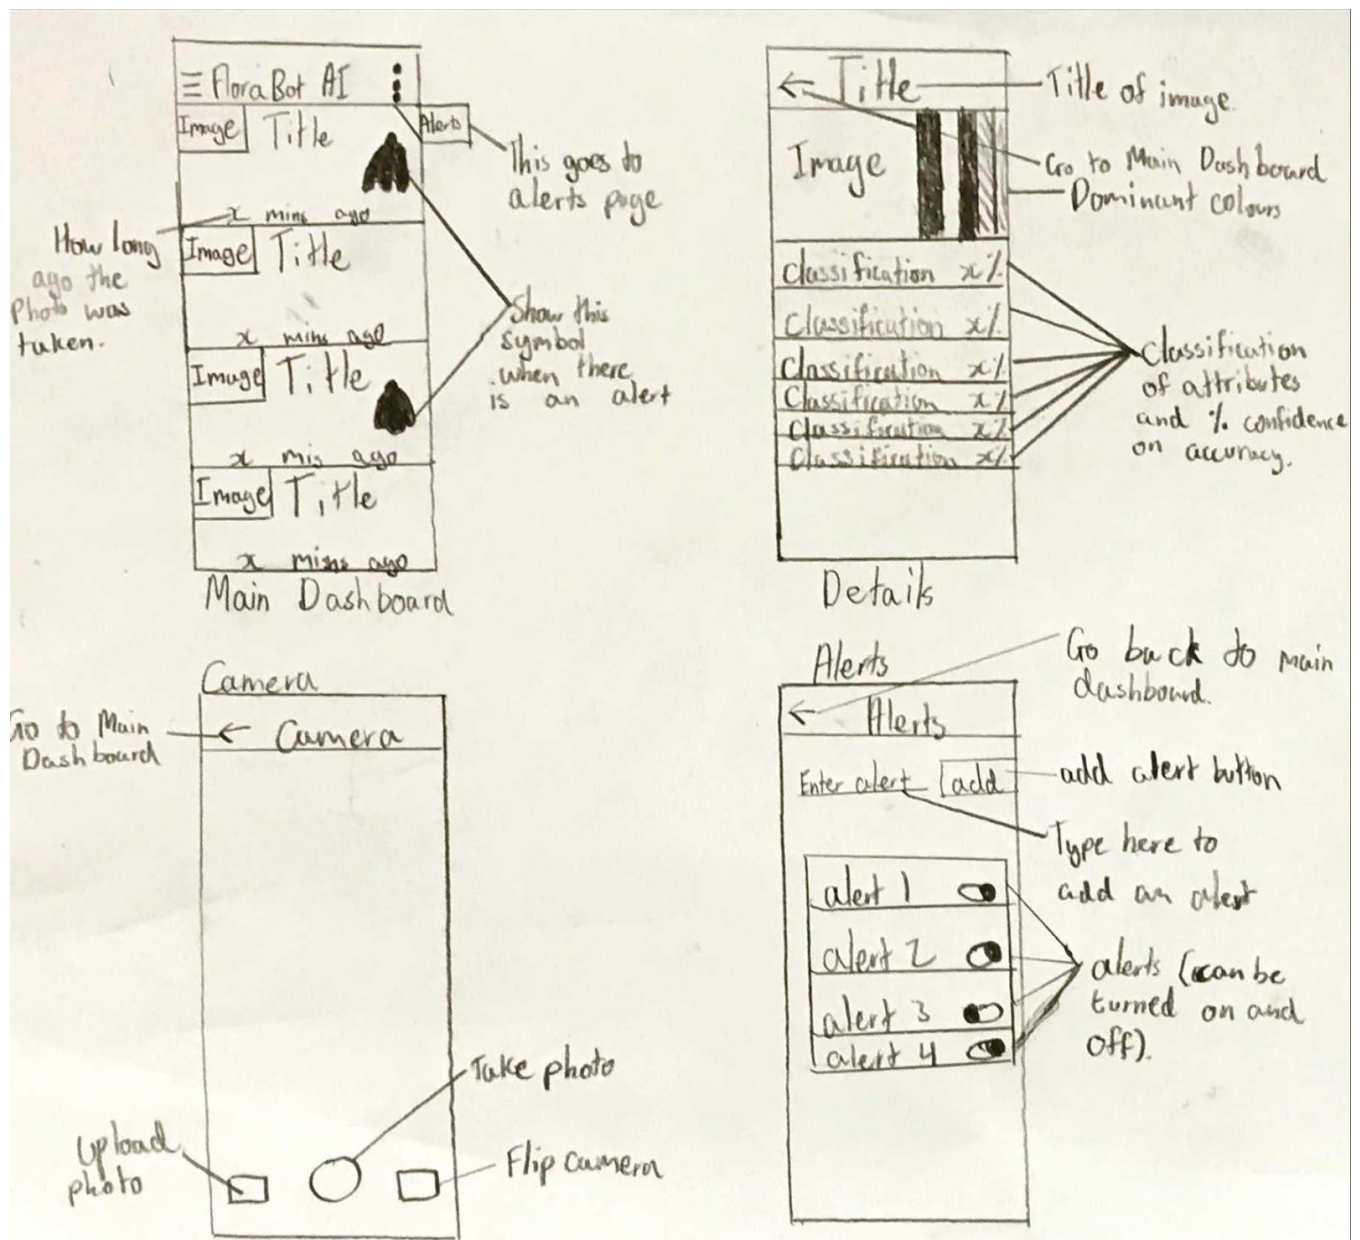 FloraBot AI
Image
Title
Alerts
x mins ago
Image
Title
x mins ago
Image
Title
x mis ago
Image
Title
x mins ago
Main Dashboard
How long
ago the
Photo was
taken.
This goes to
alerts page
Show this
symbol
when there
is an alert
Title
Image
Classification x%
Classification x%
Classification x%
Classification x%
Classification x%
Classification x%
Details
Title of image
Go to Main Dashboard
Dominant colours
Classification
of attributes
and % confidence
on accuracy.
Camera
Camera
Go to Main
Dashboard
Take photo
Upload
photo
Flip camera
Alerts
Alerts
Go back to main
dashboard.
Enter alert
add
add alert button
Type here to
add an alert
alert 1
alert 2
alert 3
alert 4
alerts (can be
turned on and
off).